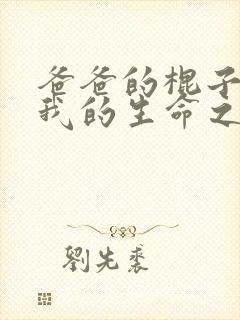 爸爸的棍子
我的生命之
劉先裘